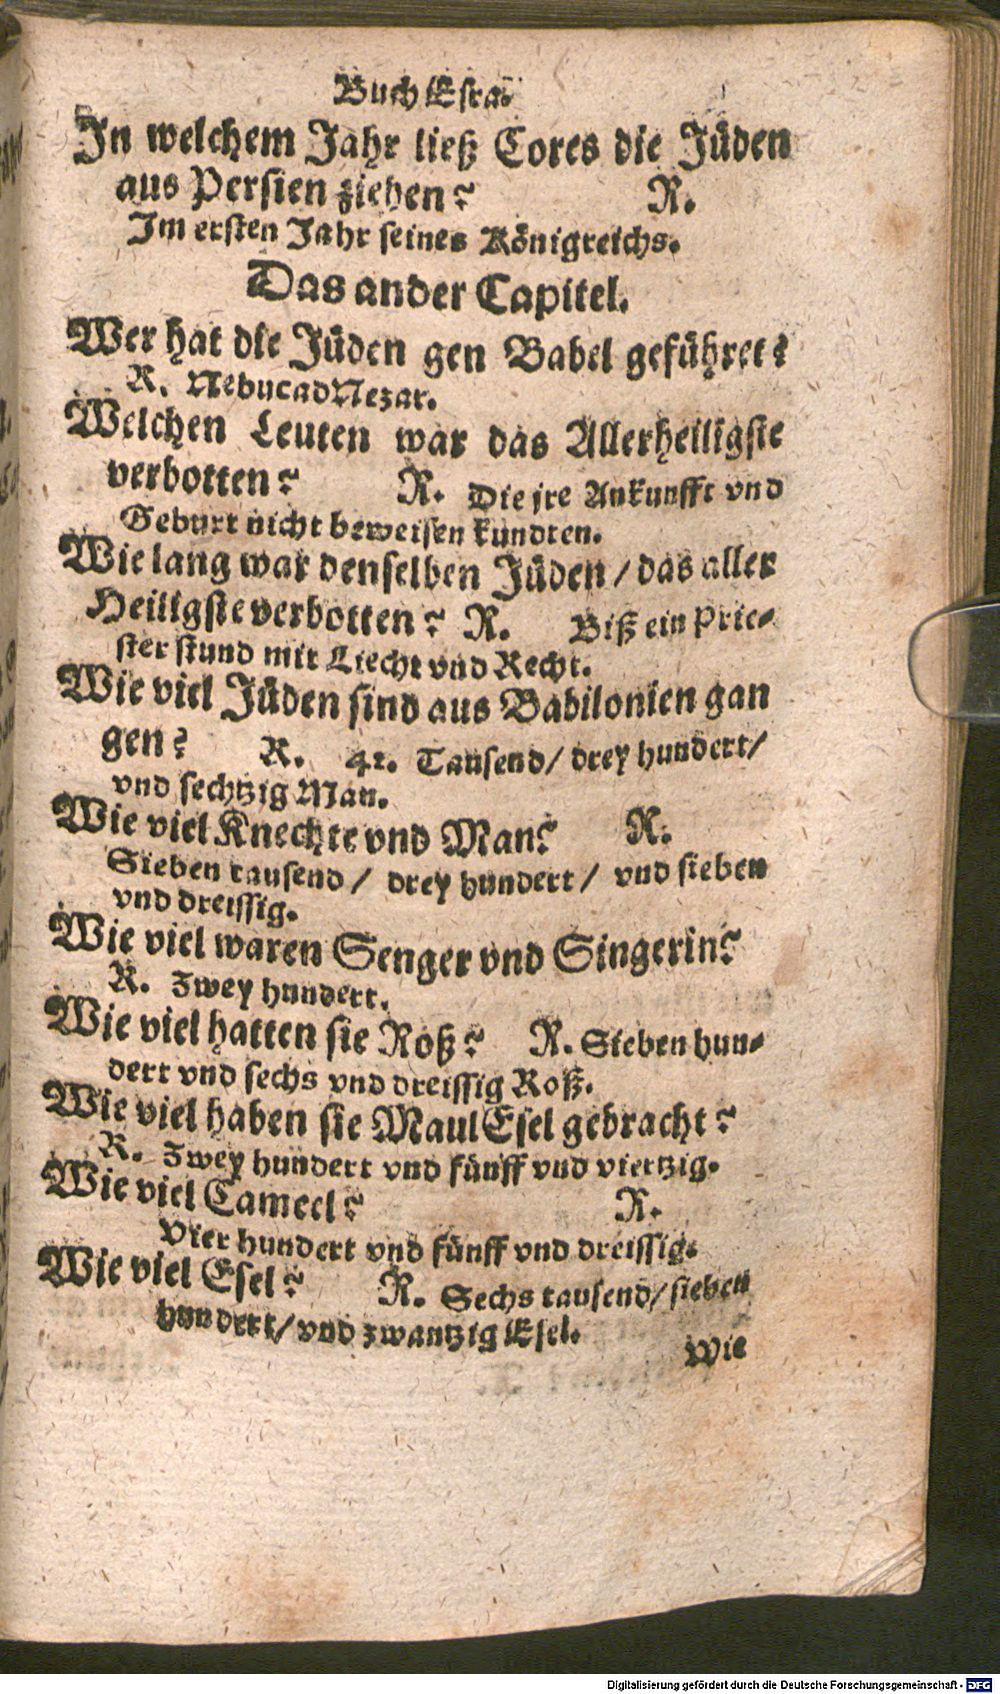 Buch Esra.
In welchem Jahr ließ Cores die Jüden
aus Persien ziehen? R.
Im ersten Jahr seines Königreichs.
Das ander Capitel.
Wer hat die Jüden gen Babel geführet?
R. NebucadNezar.
Welchen Leuten war das Allerheiligste
verbotten? R. Die jre Ankunfft vnd
Geburt nicht beweisen kundten.
Wie lang war denselben Jüden / das aller
Heiligste verbotten? R. Biß ein Prie-
ster stund mit Liecht vnd Recht.
Wie viel Jüden sind aus Babilonien gan
gen? R. 42. Tausend / drey hundert /
vnd sechtzig Man.
Wie viel Knechte vnd Man? R.
Sieben tausend / drey hundert / vnd sieben
vnd dreissig.
Wie viel waren Senger vnd Singerin?
R. Zwey hundert.
Wie viel hatten sie Roß? R. Sieben hun-
dert vnd sechs vnd dreissig Roß.
Wie viel haben sie MaulEsel gebracht?
R. Zwey hundert vnd fünff vnd viertzig.
Wie viel Cameel? R.
Vier hundert vnd fünff vnd dreissig.
Wie viel Esel? R. Sechs tausend / sieben
hundert / vnd zwantzig Esel.
Wie
Digitalisierung gefördert durch die Deutsche Forschungsgemeinschaft - DFG